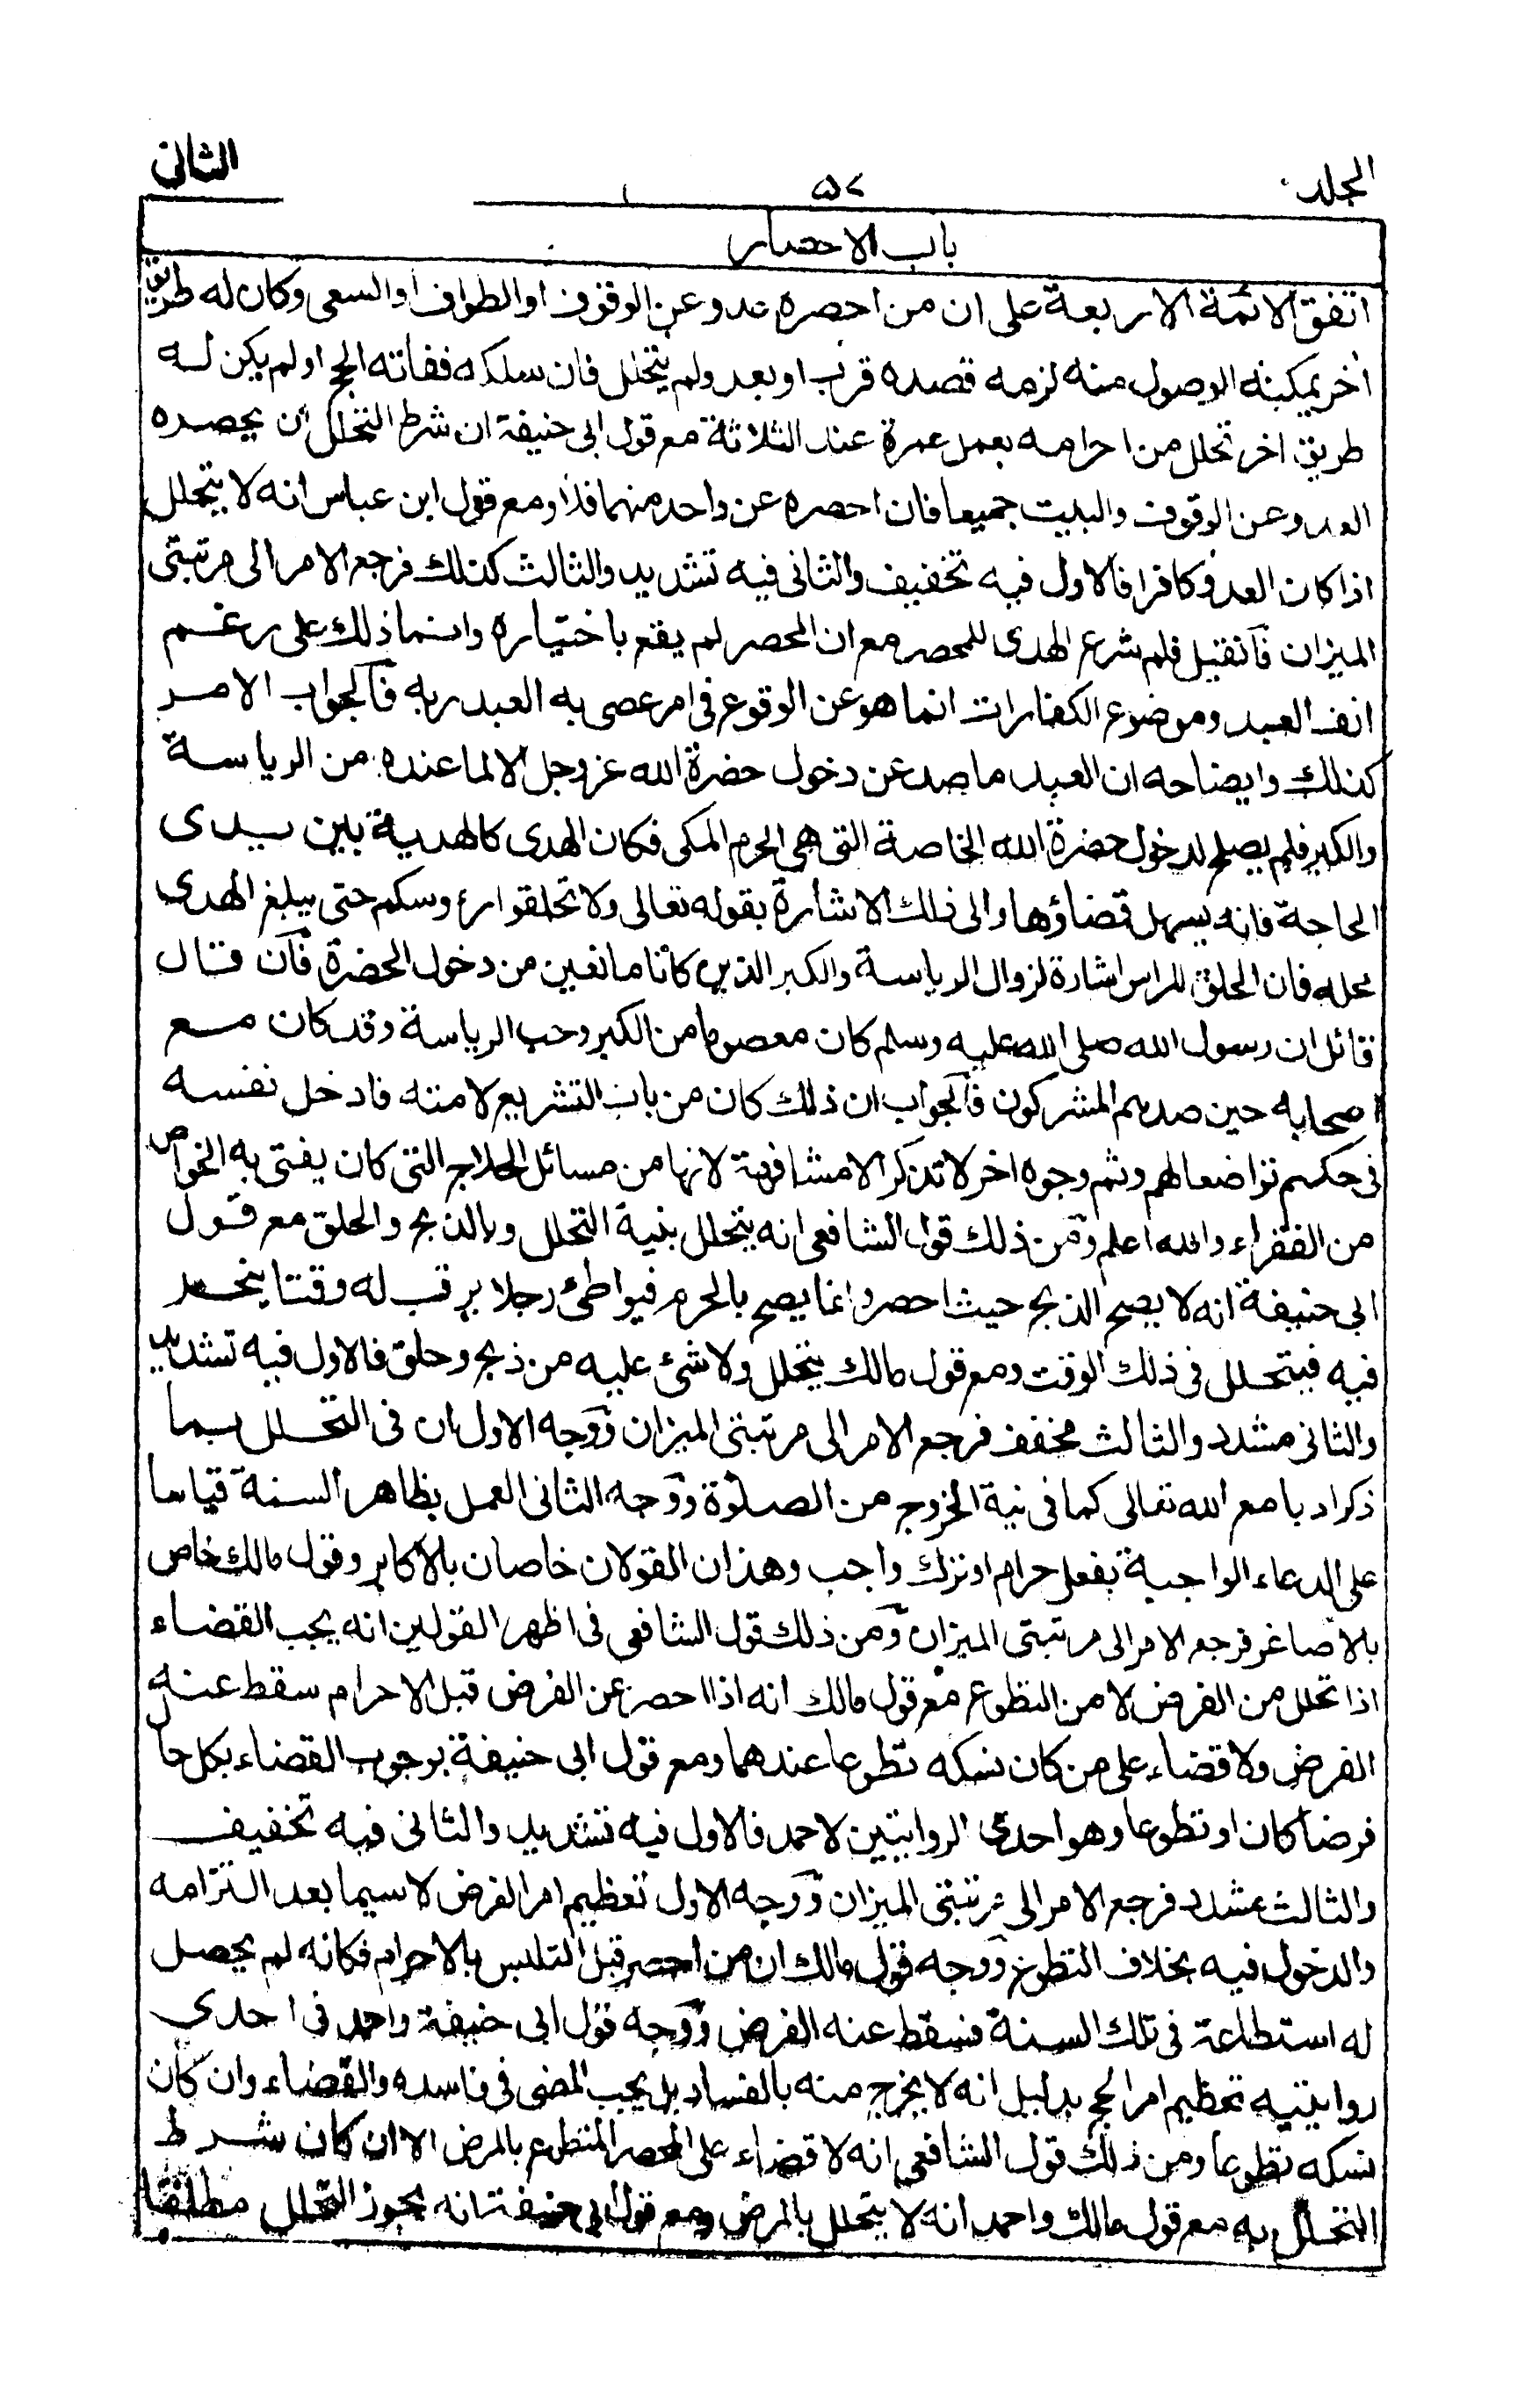 المجلد
۵۲
الثانى
باب الاحصار
اتفق الائمة الاربعة على ان من احصره عدو عن الوقوف او الطواف او السعى وكان له طريق
اخر يمكنه الوصول منه لزمه قصده قرب او بعد ولم يتحلل فان سلكه ففاته الحج او لم يكن له
طريق اخر تحلل من احرامه بعمل عمرة عند الثلاثة مع قول ابى حنيفة ان شرط التحلل ان يحصره
العدو عن الوقوف والبيت جميعا فان احصره عن واحد منهما فلا ومع قول ابن عباس انه لا يتحلل
اذا كان العدو كافرا فالاول فيه تخفيف والثانى فيه تشديد والثالث كذلك فرجع الامر الى مرتبتى
الميزان فآن قيل فلم شرع الهدى للمحصر مع ان المحصر لم يقع باختياره وانما ذلك على رغم
انف العبد وموضوع الكفارات انما هو عن الوقوع فى امر عصى به العبد ربه فآلجواب الامر
كذلك وايضاحه ان العبد ما صد عن دخول حضرة الله عز وجل الا لما عنده من الرياسة
والكبر فلم يصلح لدخول حضرة الله الخاصة التى هى الحرم المكى فكان الهدى كالهدية بين يدى
الحاجة فانه يسهل قضاؤها والى ذلك الاشارة بقوله تعالى ولا تحلقوا رءوسكم حتى يبلغ الهدى
محله فان الحلق للراس اشارة لزوال الرياسة والكبر الذين كانا مانعين من دخول الحضرة فآن قال
قائل ان رسول الله صلى الله عليه وسلم كان معصوما من الكبر وحب الرياسة وقد كان مع
اصحابه حين صدهم المشركون فآلجواب ان ذلك كان من باب التشريع لامته فادخل نفسه
فى حكمهم تواضعا لهم وثم وجوه اخر لا تذكر الا مشافهة لانها من مسائل الحلاج التى كان يفتى به الخواص
من الفقراء والله اعلم وآمن ذلك قول الشافعى انه يتحلل بنية التحلل وبالذبح والحلق مع قول
ابى حنيفة انه لا يصح الذبح حيث احصر وانما يصح بالحرم فيواطئ رجلا يرقب له وقتا ينحر
فيه فيتحلل فى ذلك الوقت ومع قول مالك يتحلل ولا شئ عليه من ذبح وحلق فالاول فيه تشديد
والثانى مشدد والثالث مخفف فرجع الامر الى مرتبتى الميزان ووجه الاول ان فى التحلل بما
ذكر ادبا مع الله تعالى كما فى نية الخروج من الصلوة ووجه الثانى العمل بظاهر السنة قياسا
على الدعاء الواجبة بفعل حرام او ترك واجب وهذان القولان خاصان بالاكابر وقول مالك خاص
بالاصاغر فرجع الامر الى مرتبتى الميزان ومن ذلك قول الشافعى فى اظهر القولين انه يجب القضاء
اذا تحلل من الفرض لا من التطوع مع قول مالك انه اذا احصر عن الفرض قبل الاحرام سقط عنه
الفرض ولا قضاء على من كان نسكه تطوعا عندهما ومع قول ابى حنيفة بوجوب القضاء بكل حال
فرضا كان او تطوعا وهو احدى الروايتين لاحمد فالاول فيه تشديد والثانى فيه تخفيف
والثالث مشدد فرجع الامر الى مرتبتى الميزان ووجه الاول تعظيم امر الفرض لا سيما بعد التزامه
والدخول فيه بخلاف التطوع ووجه قول مالك ان من احصر قبل التلبس بالاحرام فكانه لم يحصل
له استطاعة فى تلك السنة فسقط عنه الفرض ووجه قول ابى حنيفة واحمد فى احدى
روايتيه تعظيم امر الحج بدليل انه لا يخرج منه بالفساد بل يجب المضى فى فاسده والقضاء وان كان
نسكه تطوعا ومن ذلك قول الشافعى انه لا قضاء على المحصر المتطوع بالمرض الا ان كان شرط
التحلل به مع قول مالك واحمد انه لا يتحلل بالمرض ومع قول ابى حنيفة انه يجوز التحلل مطلقا